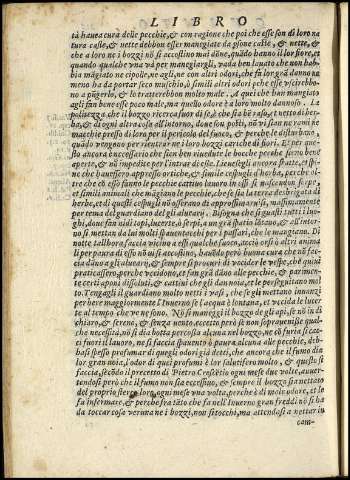 LIBRO
tà haueа cura delle pecchie, & con ragione che poi che esse son di loro na
tura caste, & nette debbon esser maneggiate da psone caste, & nette, &
che a loro ne i bozzi nō si accostino mai dōne, quādo hanno il lor fiore, et
quando qualche vna và per maneggiargli, vada ben lauata che non hab-
bia māgiato ne cipolle, ne agli, ne con altri odori, che fa lor grā danno ne
meno ha da portar seco muschio, ò simili altri odori pche esse vscirebbo-
no a pūgerla, & la tratterebbon molto male. A quei che han mangiato
agli fan bene esse poco male, ma quello odore è a loro molto dannoso. La
politezza che il bozzo ricerca fuor di se, è che sia bē raso, et netto di her-
ba, & di ogni altra cosa all'intorno, doue son posti, nō vi stan ne rami ne
macchie presso di loro per il pericolo del fuoco, & perche le disturbano,
quādo vengono per rientrare ne i loro bozzi cariche di fiori. Et per que
sto ancora è necessario che stan ben nettate le bocche perche sieno bene
aperte, & nō impedite per l'intrar di esse. Leuesegli ancora spatte, et spi-
ne che hauessero appresso ortiche, & simile cespugli d'herba, perche ol-
tre che cō esso fanno le pecchie cattiuo lauoro in essi si nascendon serpe,
et simili animali che māgiano le pecchie, che se sia la terra desbrigata di
herbe, et di questi cespugli nō oserano di approssimaruisi, massimamente
per tema del guardiano del gli alutarij. Bisogna che si guasti tutti i luo-
ghi, doue fan nidi topi, lucerte, ò serpi, à vn grā spatio lōtano, & all'intor-
no si mettan da lui molti spauentacchi per i passari, che le mangiano. Di
notte tallhora faccia vicino a essi qualche fuoco, acciò orsi ò altri anima
li per paura di esso nō vi si accostino, hauēdo però buona cura che nō fac-
cia danno a gli alutarij, & sempre si procuri di vccider le vespe, che quiui
praticassero, perche vecidono, et fan grā dāno alle pecchie, & parimen-
te certi aponi dissoluti, & cattiui che gli dan noia, et le perseguitano mol
to. Tengagli il guardiano molto netti i vasi, che se gli mettono innanzi
per bere maggiormente l'Inuerno se l'acqua è lontana, et vecida le lucer
te al tempo che ve ne sono. Nō si maneggi il bozzo de gli api, se nō in dì
chiaro, & sereno, & senza vento, eccetto però se non soprauenisse qual-
che necessità, nō si dia botta percossa alcuna nel bozzo, ne cō furia si cac-
ci fuori il lauoro, ne si faccia spauento ò paura alcuna alle pecchie, deb-
basi spesso profumar di quegli odori già detti, che ancora che il fumo dia
lor gran noia, l'odor di quei profumi è lor saluteuo molto, & questo si
faccia, secōdo il precetto di Pietro Crescētio ogni mese due volte, auuer-
tendosi però che il fumo non sia eccessiuo, & sempre il bozzo sia nettato
del proprio sterco loro, ogni mese vna volta, perche è di mal'odore, et le
fa infermare, & perche fra tāto che fa nell'Inuerno gran freddi nō si ha
da toccar cosa veruna ne i bozzi, non si tocchi, ma attendasi a nettar in
com-